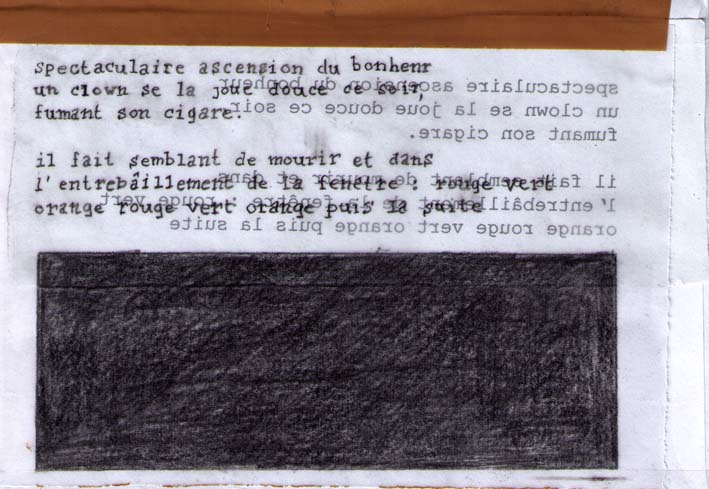 spectaculaire ascension du bonhenr
un clown se la joue douce ce soir,
fumant son cigare.
il fait semblant de mourir et dans
l'entrebâillement de la fenêtre : rouge vert
orange rouge vert orange puis la suite
spectaculaire ascension du bonheur
un clown se la joue douce ce soir,
fumant son cigare.
il fait semblant de mourir et dans
l'entrebâillement de la fenêtre : rouge vert
orange rouge vert orange puis la suite